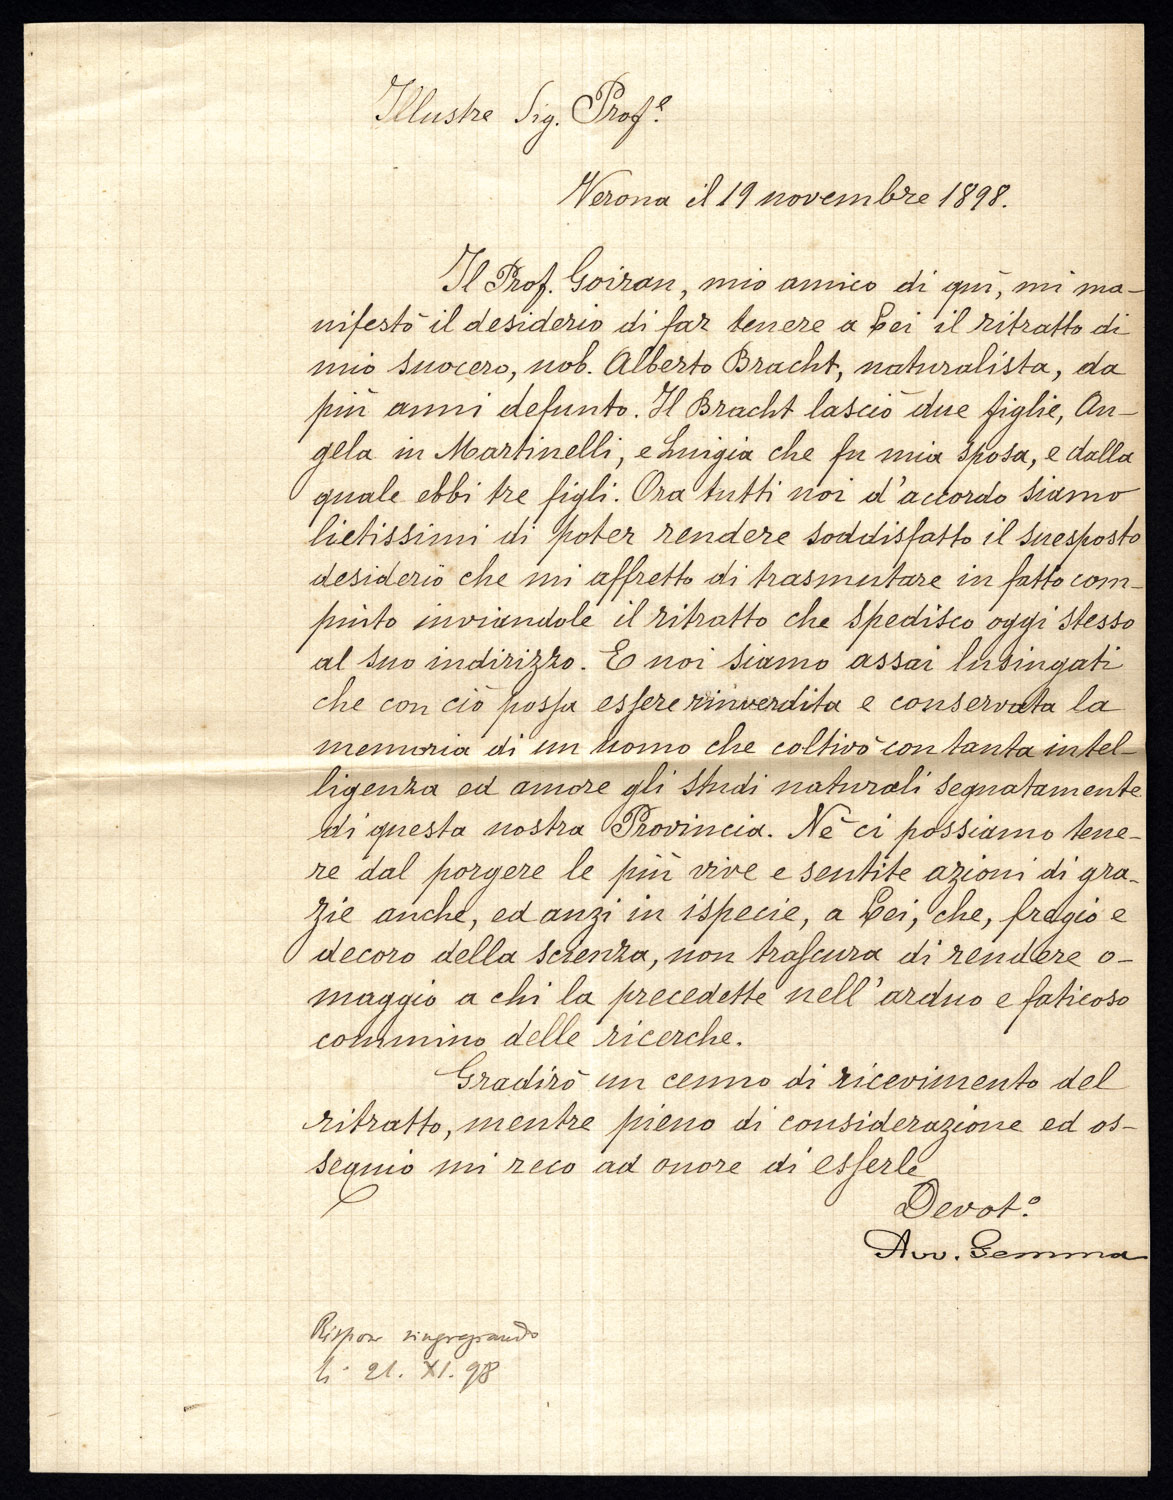 Illustre Sig. Prof.e
Verona il 19 novembre 1898.
Il Prof. Goiran, mio amico di quì, mi ma-
nifestò il desiderio di far tenere a Lei il ritratto di
mio suocero, nob. Alberto Bracht, naturalista, da
più anni defunto. Il Bracht lasciò due figlie, An-
gela in Martinelli, e Luigia che fu mia sposa, e dalla
quale ebbi tre figli. Ora tutti noi d'accordo siamo
lietissimi di poter rendere soddisfatto il suesposto
desiderio che mi affretto di trasmutare in fatto com-
piuto inviandole il ritratto che spedisco oggi stesso
al suo indirizzo. E noi siamo assai lusingati
che con ciò possa essere rinverdita e conservata la
memoria di un uomo che coltivò con tanta intel-
ligenza ed amore gli studi naturali segnatamente
di questa nostra Provincia. Nè ci possiamo tene-
re dal porgere le più vive e sentite azioni di gra-
zie anche, ed anzi in ispecie, a Lei, che, fregio e
decoro della scienza, non trascura di rendere o-
maggio a chi la precedette nell'arduo e faticoso
cammino delle ricerche.
Gradirò un cenno di ricevimento del
ritratto, mentre pieno di considerazione ed os-
sequio mi reco ad onore di esserle
Devot.o
Avv. Gemma
21. XI. 98